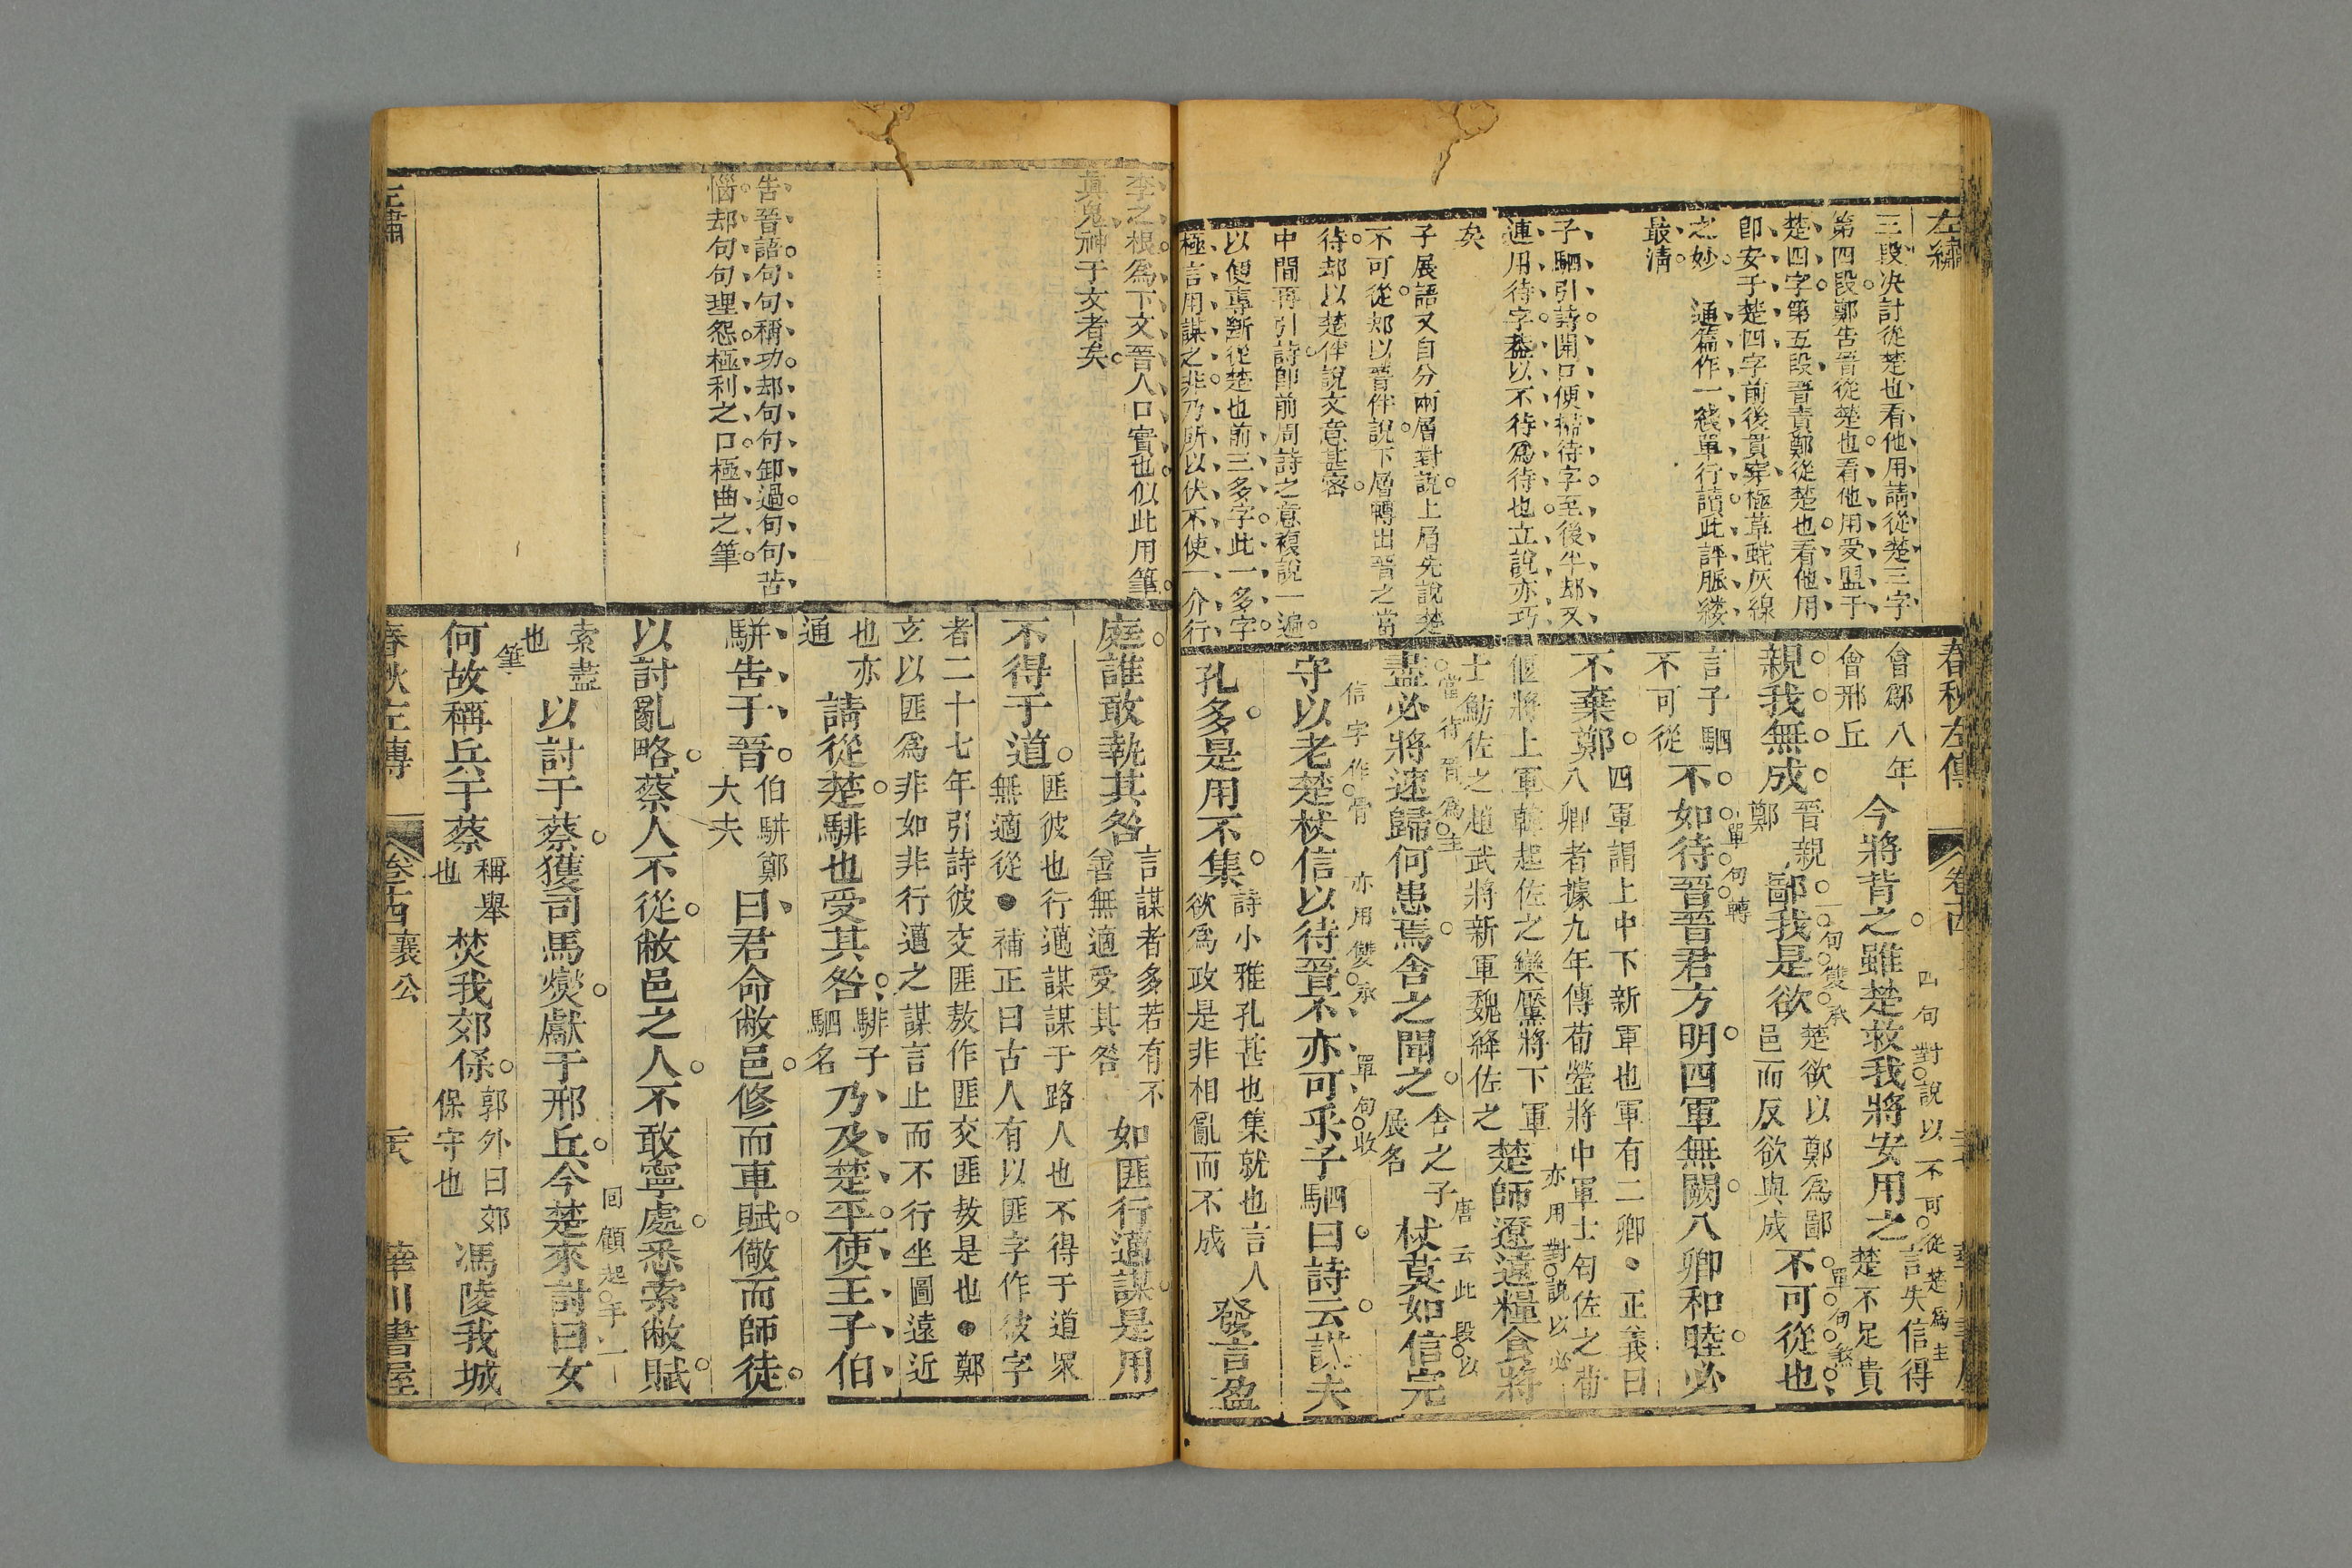 左繡
三段決計從楚也看他用請從楚三字
第四段鄭告晉從楚也看他用受盟于
楚四字第五段晉責鄭從楚也看他用
卽安于楚四字前後貫穿極草蛇灰線
之妙　通篇作一綫單行讀此評脈縷
最清
子駟引詩開口便掃待字至後半却又
連用待字葢以不待爲待也立說亦巧
矣
子展語又自分兩層對說上層先說楚
不可從却以晉伴說下層轉出晉之當
待却以楚伴說文意甚密
中間再引詩卽前周詩之意複說一遍
以便專斷從楚也前三多字此一多字
極言用謀之非乃所以伏不使一介行
春秋左傳
卷十四
會鄬八年
會邢丘
今將背之雖楚救我將安用之
言失信得
楚不足貴
四句對說以不可從楚爲主
親我無成
晉親
鄭
鄙我是欲
楚欲以鄭爲鄙
邑而反欲與成
不可從也
一句雙承
單句煞
言子駟
不可從
不如待晉晉君方明四軍無闕八卿和睦必
單句轉
不棄鄭
四軍謂上中下新軍也軍有二卿正義曰
八卿者據九年傳荀罃將中軍士匄佐之荀
偃將上軍韓起佐之欒黶將下軍
士魴佐之趙武將新軍魏絳佐之
楚師遼遠糧食將
亦用對說以必
當待晉爲主
盡必將速歸何患焉舍之聞之
舍之子
展名
杖莫如信完
唐云此段以
信字作骨
亦用雙承
單句收
守以老楚杖信以待晉不亦可乎子駟曰詩云謀夫
孔多是用不集
詩小雅孔甚也集就也言人
欲爲政是非相亂而不成
發言盈
李之根爲下文晉人口實也似此用筆
真鬼神于文者矣
告晉語句句稱功却句句卸過句句苦
惱却句句理怨極利之口極曲之筆
庭誰敢執其咎
言謀者多若有不
善無適受其咎
如匪行邁謀是用
不得于道
匪彼也行邁謀謀于路人也不得于道眾
無適從●補正曰古人有以匪字作彼字
者二十七年引詩彼交匪敖作匪交匪敖是也●鄭
玄以匪爲非如非行邁之謀言止而不行坐圖遠近
也亦
通
請從楚騑也受其咎
騑子
駟名
乃及楚平使王子伯
駢告于晉
伯駢鄭
大夫
曰君命敝邑修而車賦儆而師徒
以討亂略蔡人不從敝邑之人不敢寧處悉索敝賦
索盡
也
以討于蔡獲司馬燮獻于邢丘今楚來討曰女
回顧起手一
筆
何故稱兵于蔡
稱舉
也
焚我郊保
郭外曰郊
保守也
馮陵我城
左繡
春秋左傳
卷十四襄公
華川書屋